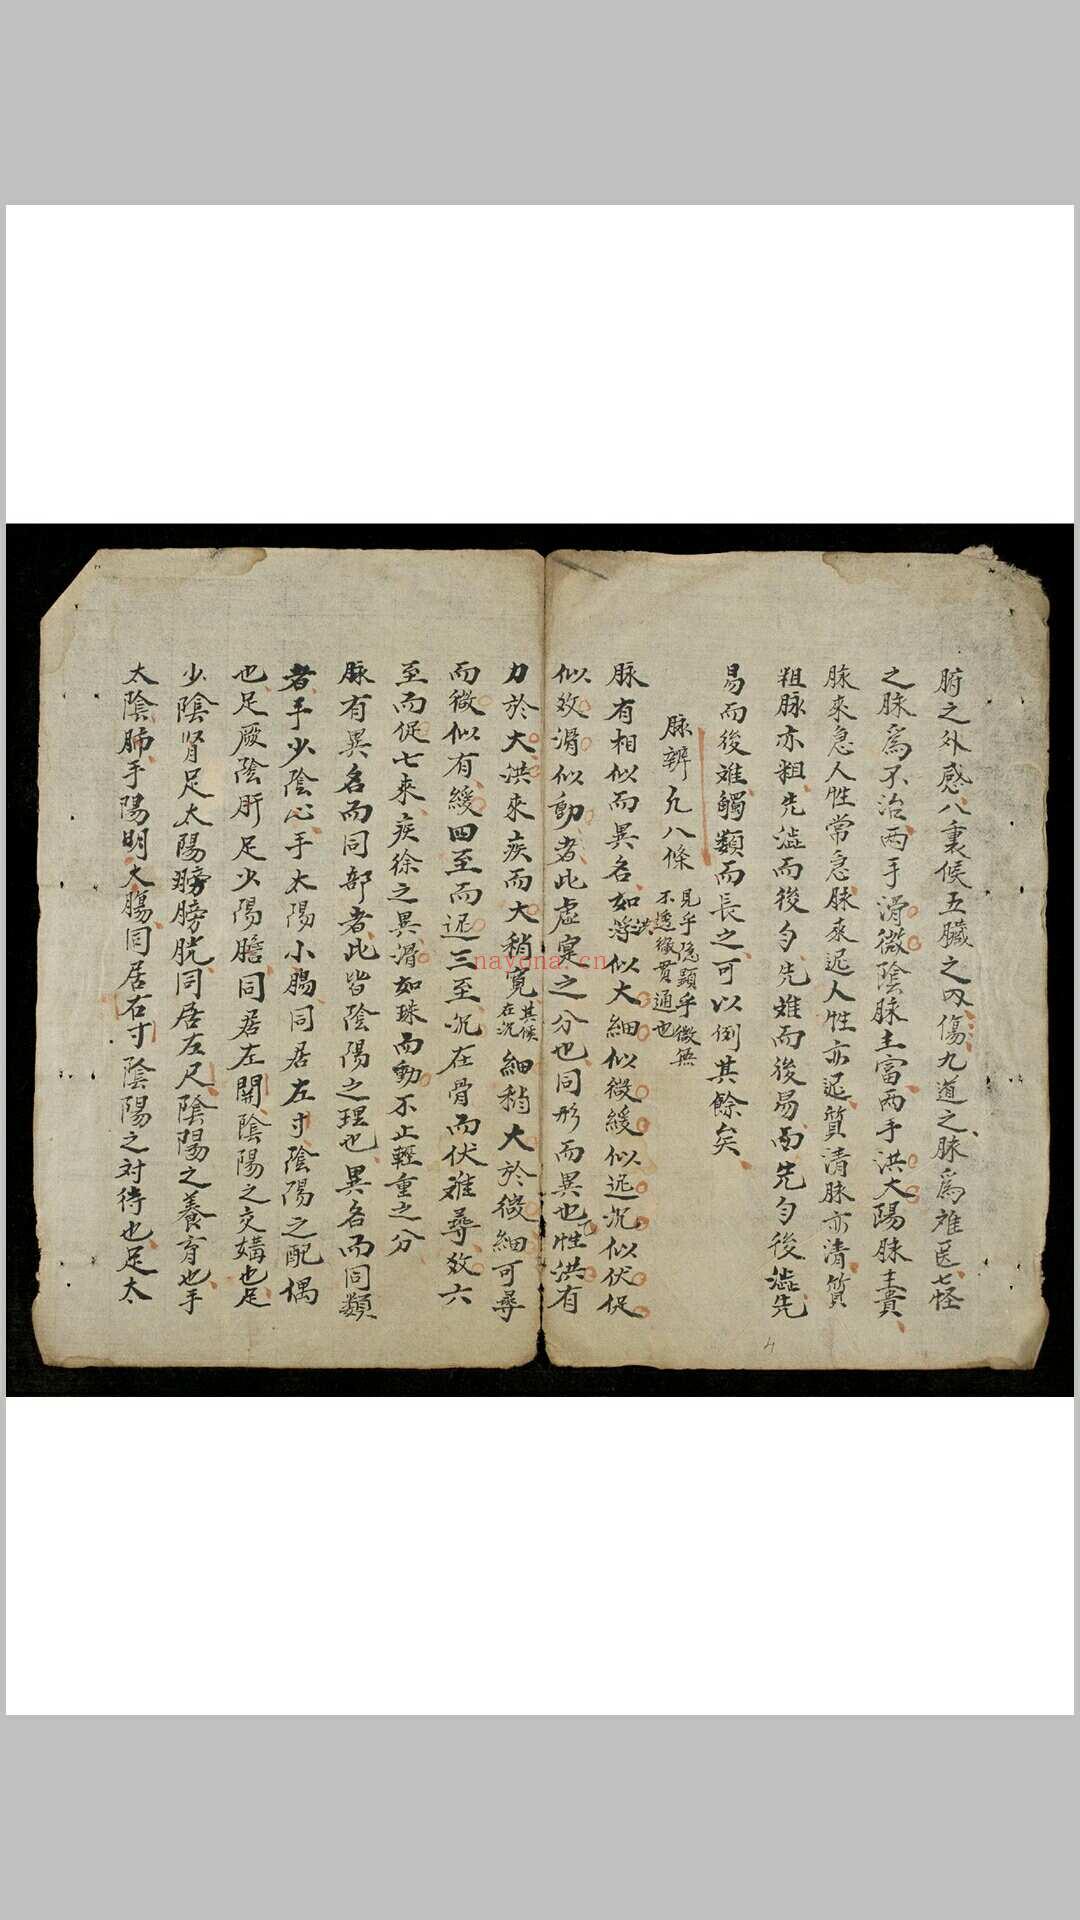 腑之外感八裏候五臟之內傷九道之脉爲难医七怪
之脉爲不治兩手滑微陰脉主富两手洪大陽脉主貴
脉来急人性常急脉来迟人性亦迟質清脉亦清質
粗脉亦粗先澁而後匀先难而後易而先匀後澁先
易而後难觸類而長之可以倒其餘矣
脉辨凡八條 見乎隐顕乎微無不透徹貫通也
脉有相似而異名如浮似大細似微緩似迟沉似伏促
洪
似效滑似動者此虛寔之分也同形而異也性洪有
力於大洪来疾而大稍寛其候在沉細稍大於微細可尋
而微似有緩四至而迟三至沉在骨而伏难尋效六
至而促七来疾徐之異滑如珠而動不止輕重之分
脉有異名而同部者此皆陰陽之理也異名而同類
者手少陰心手太陽小腸同居左寸陰陽之配偶
也足厥陰肝足少陽膽同居左關陰陽之交媾也足
少陰腎足太陽膀膀胱同居左尺陰陽之養育也手
太陰肺手陽明大膓同居右寸陰陽之对待也足太
nayona.cn